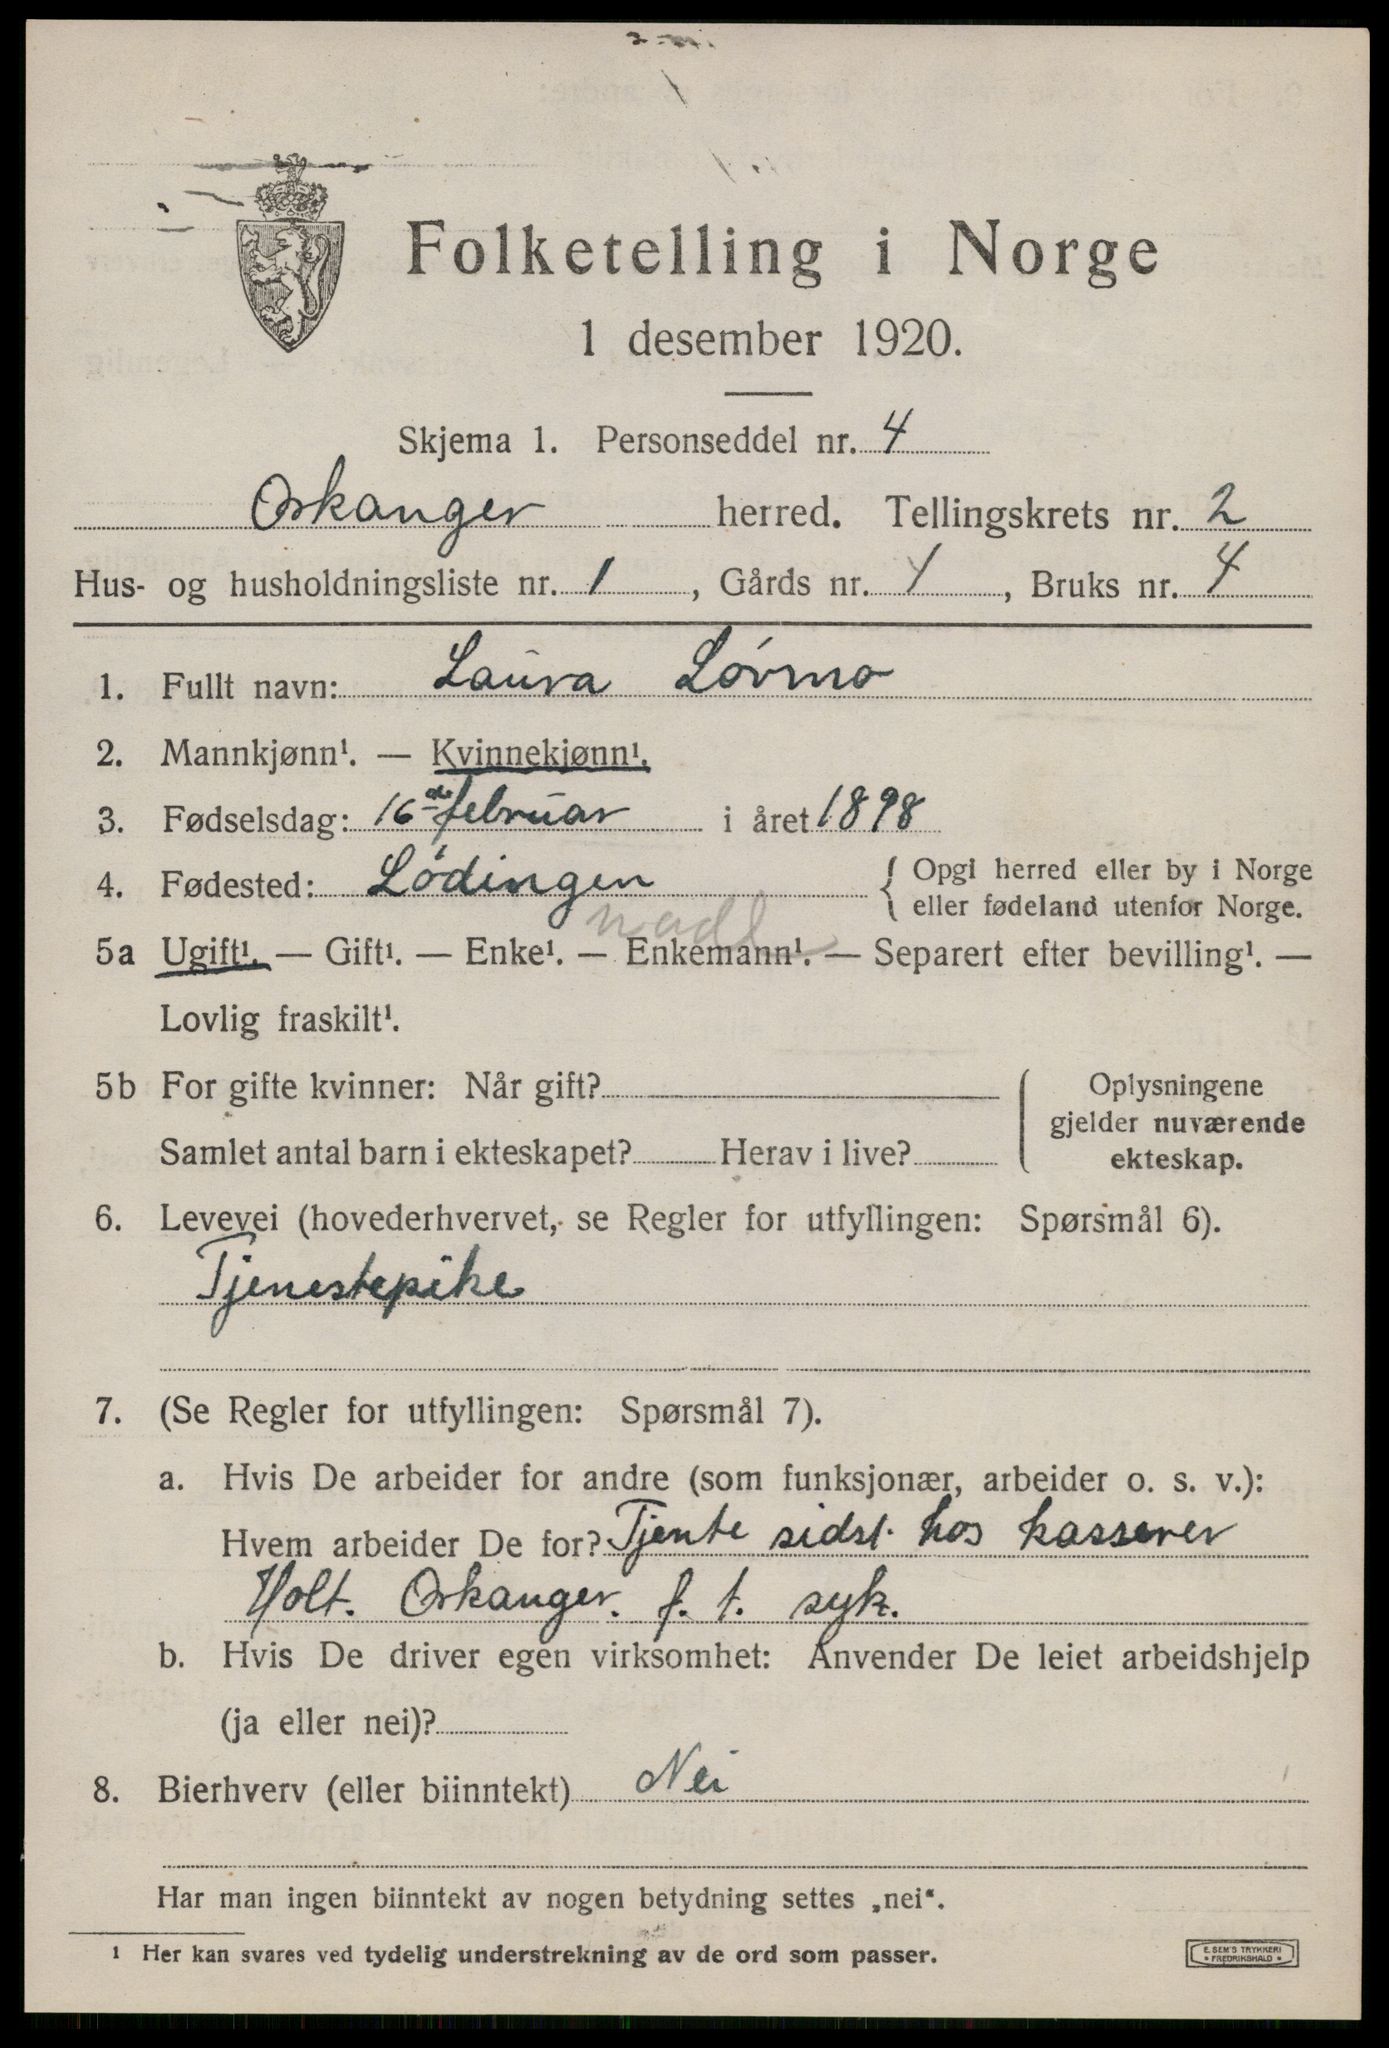 Folketelling i Norge
1 desember 1920.
Skjema 1. Personseddel nr. 4
Orkanger herred. Tellingskrets nr. 2
Hus- og husholdningsliste nr. 1, Gårds nr. 1, Bruks nr. 4
1. Fullt navn: Laura Lövmo
2. Mannkjønn¹. — Kvinnekjønn¹.
3. Fødselsdag: 16de februar i året 1898
4. Fødested: Lödingen { Opgi herred eller by i Norge
eller fødeland utenfor Norge.
nordl
5a Ugift¹. — Gift¹. — Enke¹. — Enkemann¹. — Separert efter bevilling¹. —
Lovlig fraskilt¹.
5b For gifte kvinner: Når gift? Oplysningene
gjelder nuværende
Samlet antal barn i ekteskapet? Herav i live? ekteskap.
6. Levevei (hovederhvervet, se Regler for utfyllingen: Spørsmål 6).
Tjenestepike
7. (Se Regler for utfyllingen: Spørsmål 7).
a. Hvis De arbeider for andre (som funksjonær, arbeider o. s. v.):
Hvem arbeider De for? Tjente sidst hos kasserer
Holt. Orkanger. f. t. syk.
b. Hvis De driver egen virksomhet: Anvender De leiet arbeidshjelp
(ja eller nei)?
8. Bierhverv (eller biinntekt) Nei
Har man ingen biinntekt av nogen betydning settes „nei“.
¹ Her kan svares ved tydelig understrekning av de ord som passer.
E. SEM'S TRYKKERI
* FREDRIKSHALD *